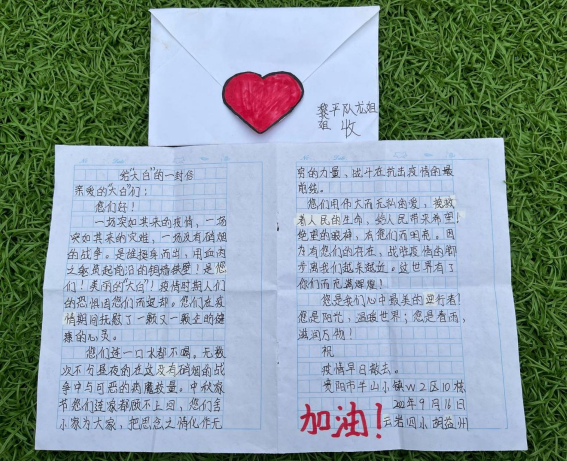 黎平队龙姐
姐 收
给"大白"的一封信
亲爱的"大白"们：
您们好！
一场突如其来的疫情，一场
突如其来的灾难，一场没有硝烟
的战争。是谁挺身而出，用血肉
之躯筑起防沿的铜墙铁壁！是您
们！美丽的"大白"！疫情时期人们
的恐惧因您们而退却。您们在疫
情期间抚慰了一颗又一颗生的健
康的心灵。
您们连一口水都不喝。无数
次不分昼夜的在这没有硝烟的战
争中与可恶的病魔较量。中秋佳
节您们连家都顾不上回，您们舍
小家为大家，把思念之情化作无
穷的力量，战斗在抗击疫情的最
前线。
您们用伟大而无私的爱，拯救
着人民的生命，给人民带来希望！
绝望的眼神，有您们而明亮。因
为有您们的存在，战胜疫情的脚
步离我们越来越近。这世界有了
你们而充满辉煌！
您是我们心中最美的逆行者！
您是阳光，温暖世界；您是春雨，
滋润万物！
祝
疫情早日散去。
贵阳市半山小镇W2区10栋
2022年9月16日
加油！
云岩四小 胡益州